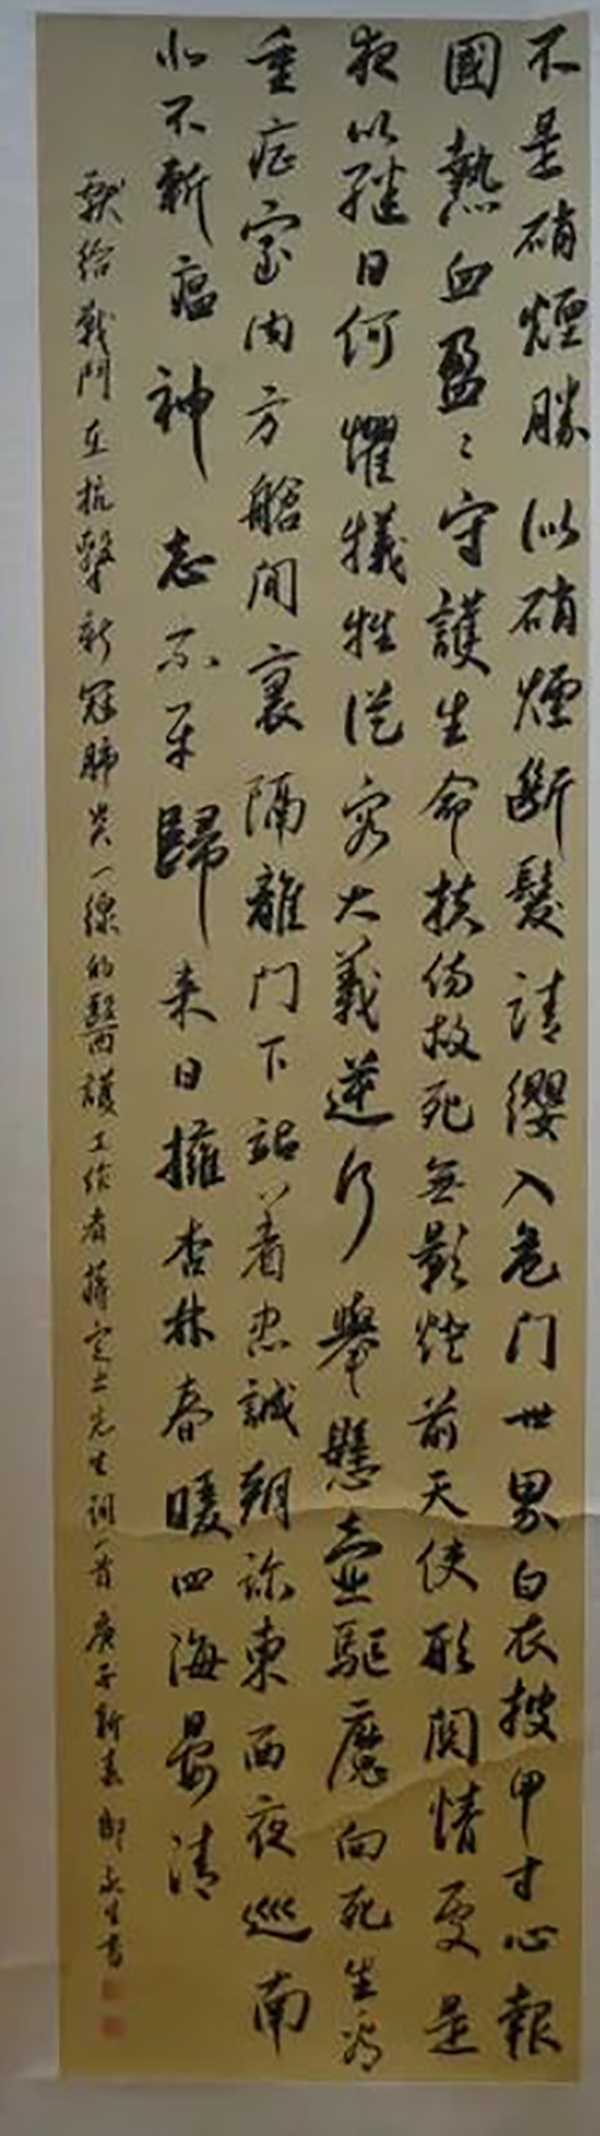 不是硝煙勝似硝煙斷髮請纓入危门世界白衣披甲寸心報
國熱血盈〻守護生命扶傷救死無影燈前天使形関情更是
夜以继日何懼犧牲從容大義逆行舉懸壺驅魔向死生為
重症室内方艙间裏隔離门下站〻着忠誠朔
東西夜巡南
北不斬瘟神志不平歸来日擁杏林春暖四海晏清
献给戰鬥在抗擊新冠肺炎一線的醫護工作者蔣定之先生詞一首庚子新春
書